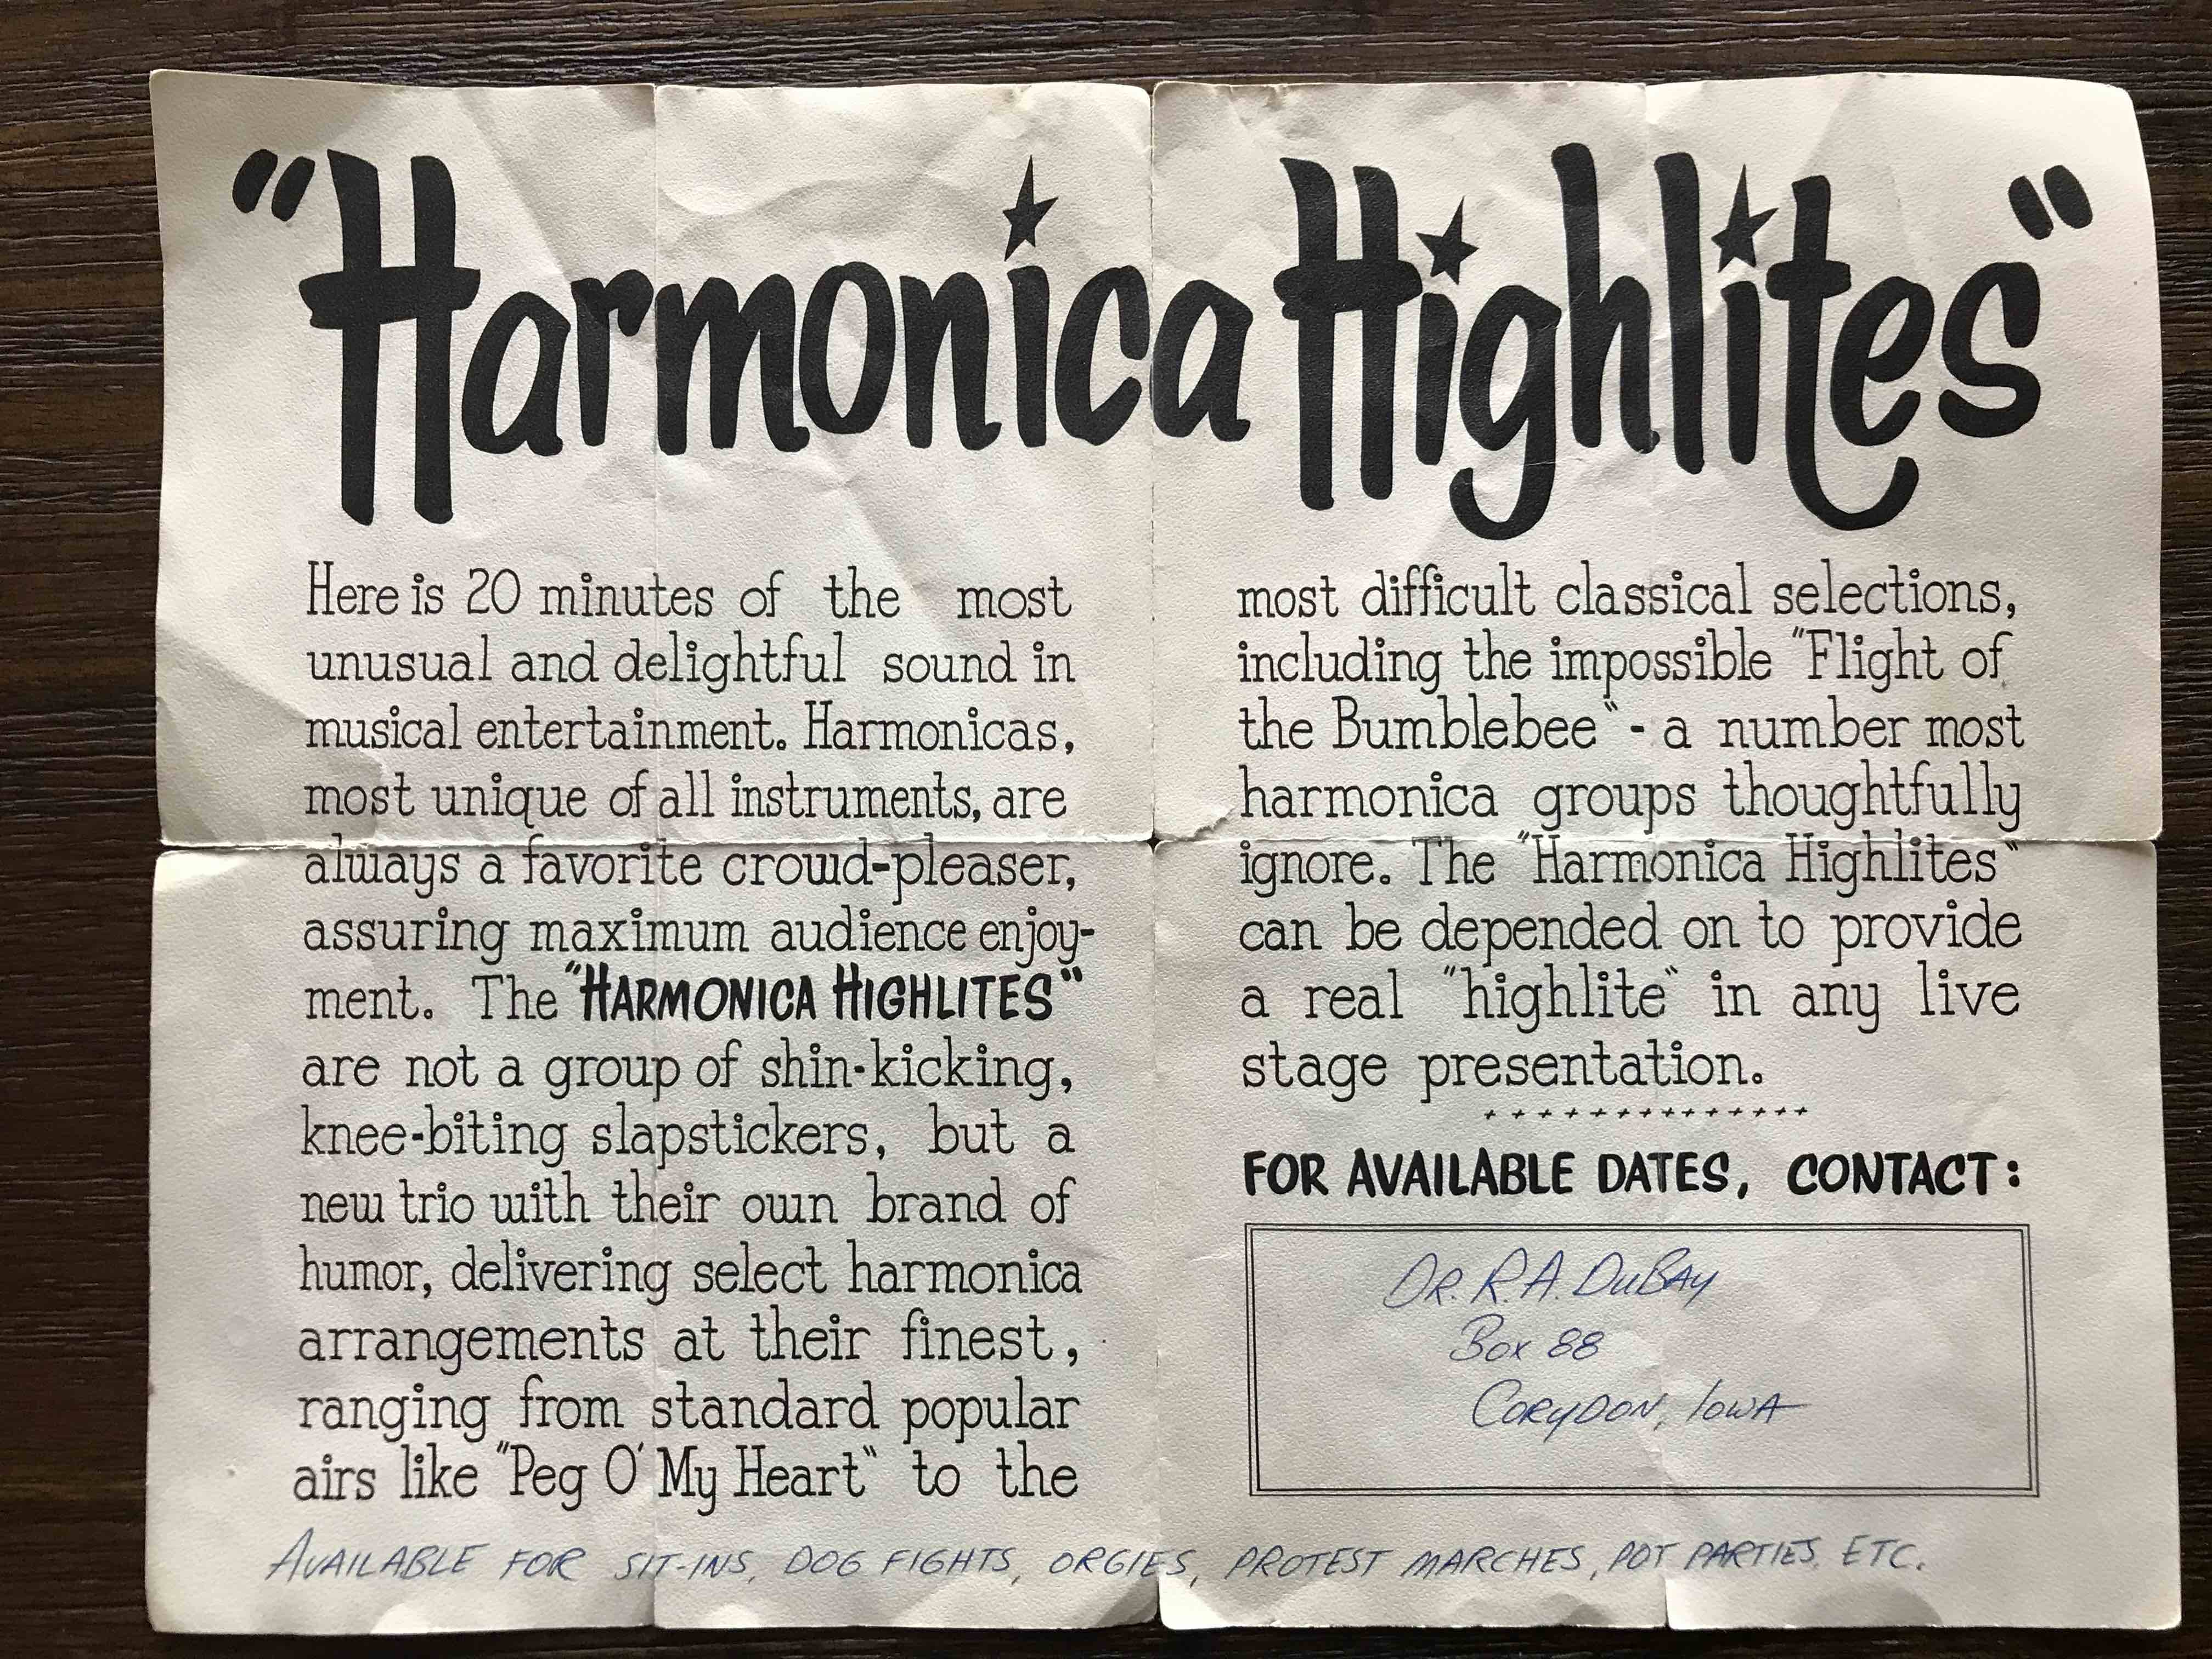 "Harmonica Highlites"
Here is 20 minutes of the most
unusual and delightful sound in
musical entertainment. Harmonicas,
most unique of all instruments, are
always a favorite crowd-pleaser,
assuring maximum audience enjoy-
ment. The "HARMONICA HIGHLITES"
are not a group of shin-kicking,
knee-biting slapstickers, but a
new trio with their own brand of
humor, delivering select harmonica
arrangements at their finest,
ranging from standard popular
airs like "Peg O' My Heart" to the
most difficult classical selections,
including the impossible "Flight of
the Bumblebee" - a number most
harmonica groups thoughtfully
ignore. The "Harmonica Highlites"
can be depended on to provide
a real "highlite" in any live
stage presentation.
+ + + + + + + + + + + + +
FOR AVAILABLE DATES, CONTACT:
DR. R.A. DUBAY
BOX 88
CORYDON, IOWA
AVAILABLE FOR SIT-INS, DOG FIGHTS, ORGIES, PROTEST MARCHES, POT PARTIES, ETC.